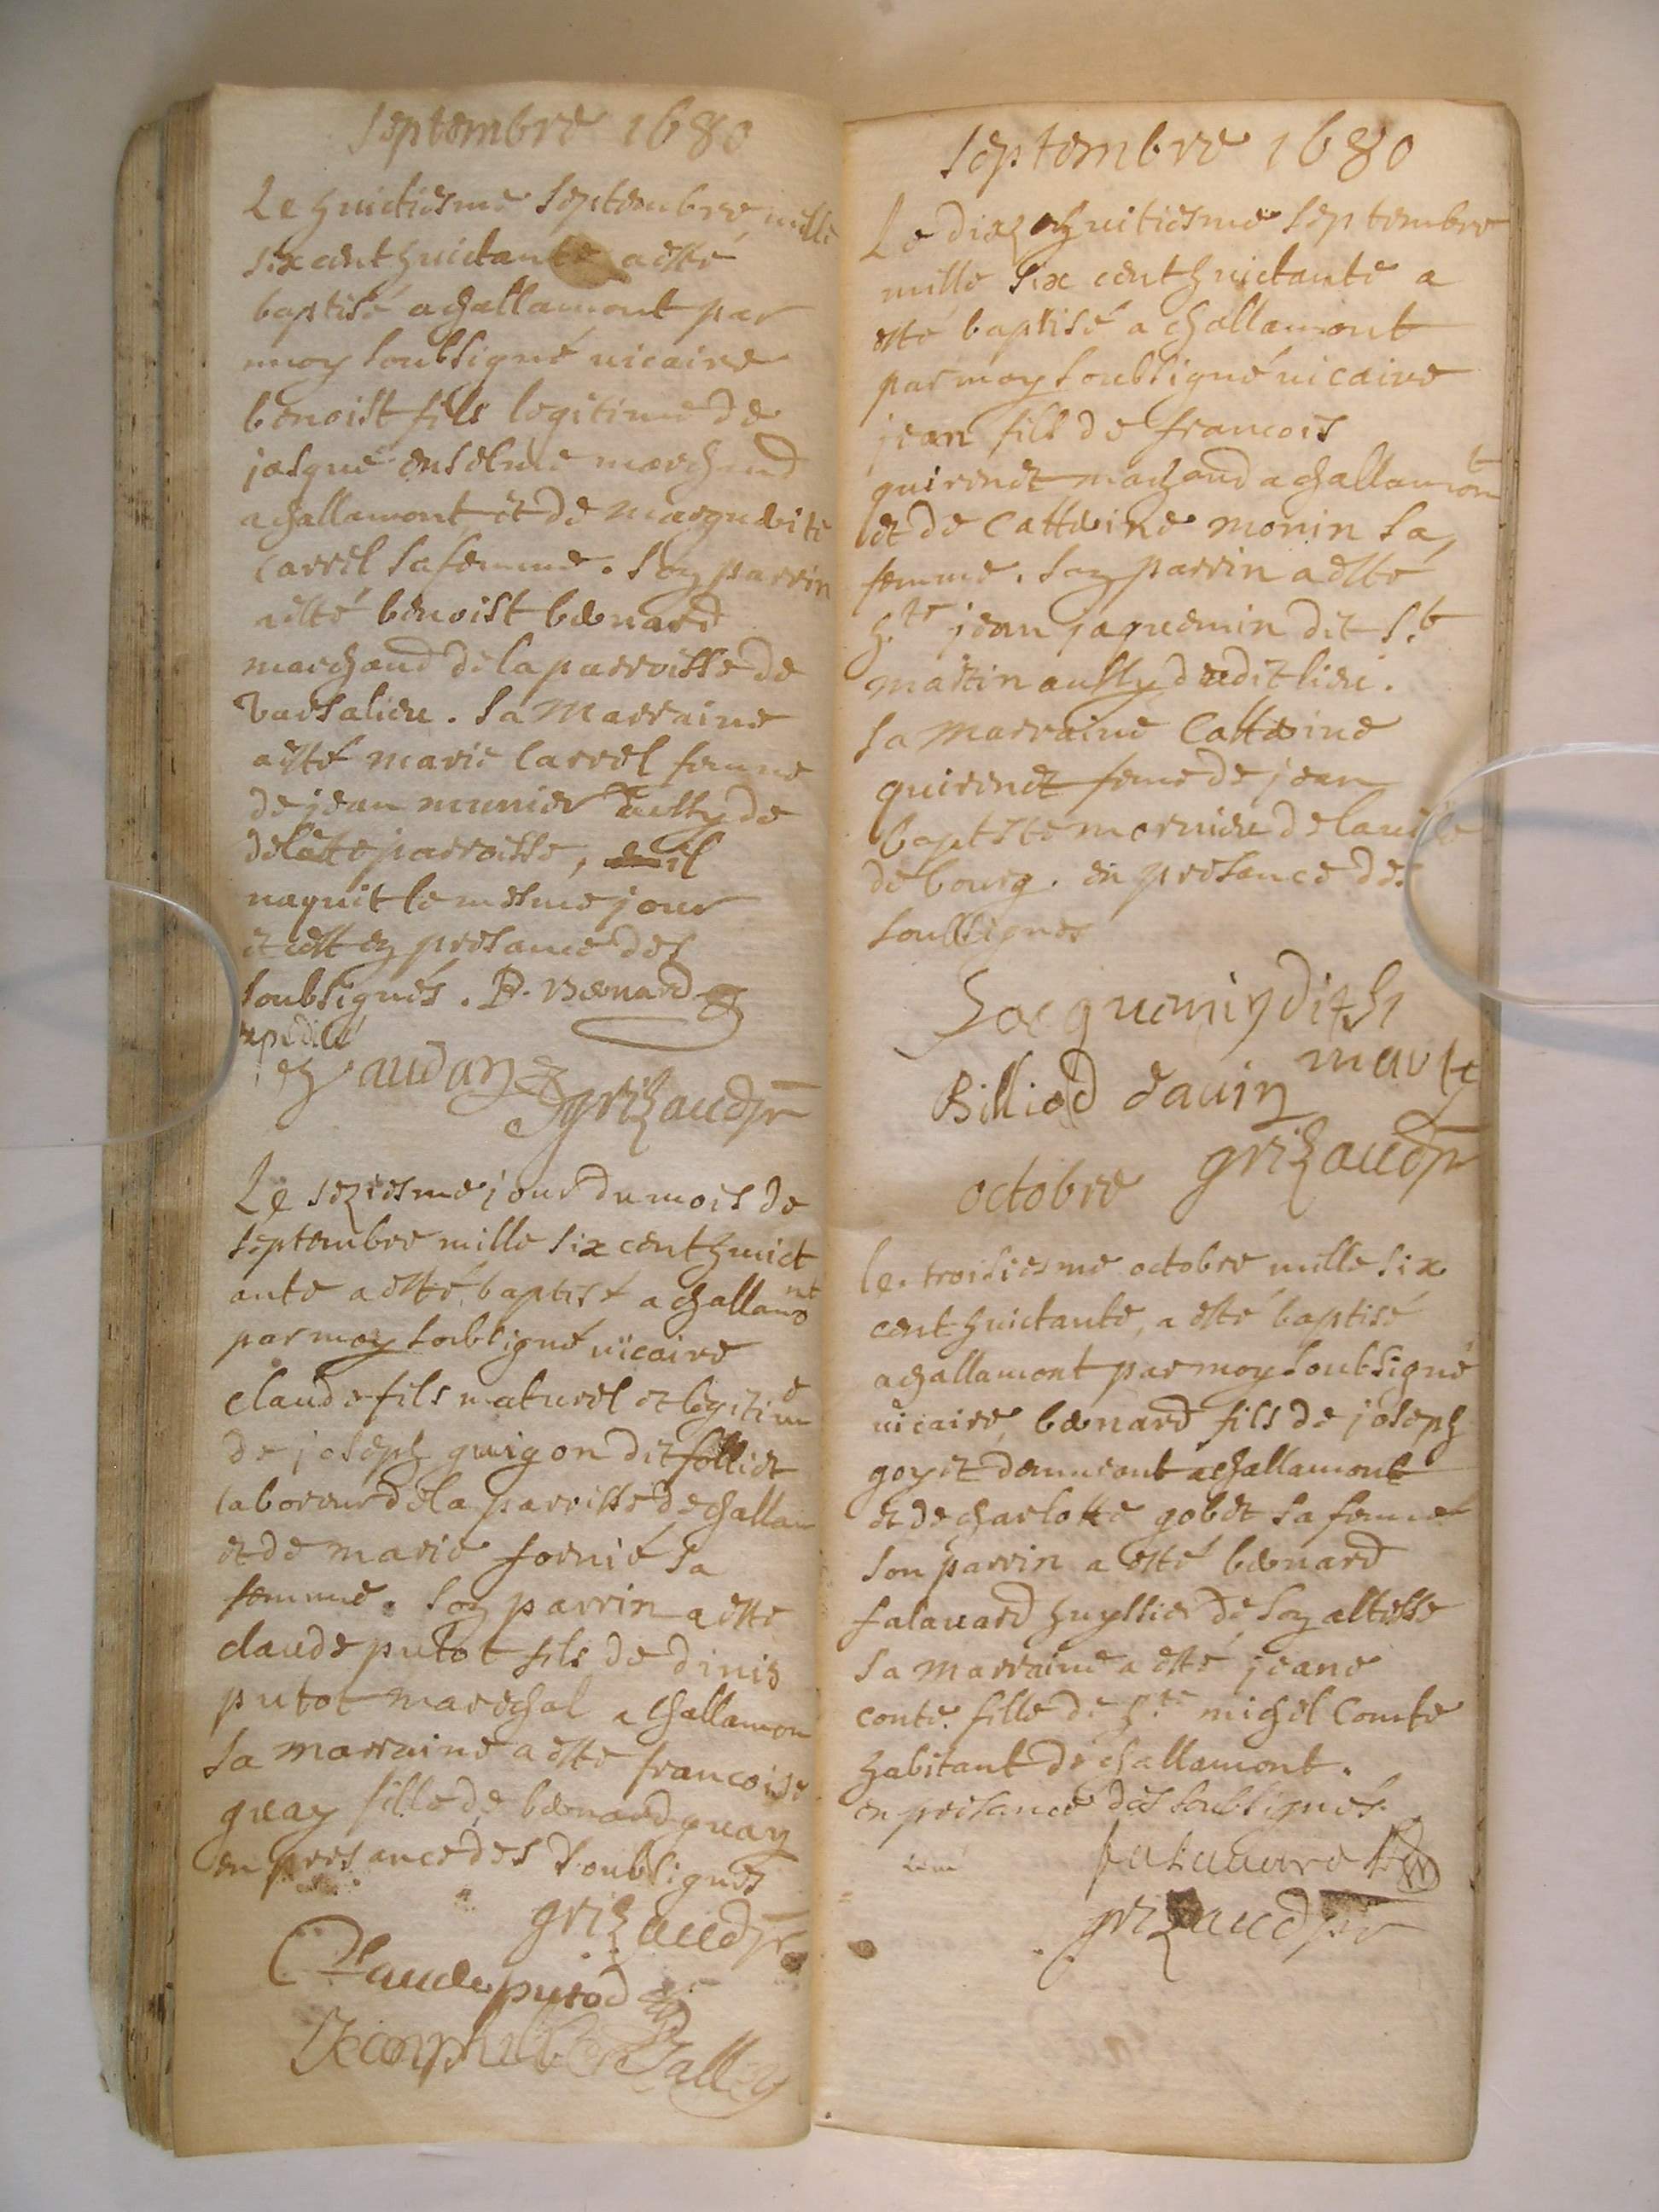 Septembre 1680
Le huictiesme Septembre mille
six cent huictante a esté
baptisé a challamont par
moy soubsigné vicaire
benoist fils legitime de
jasque enselme marchand
a challamont et de marguerite
carrel sa femme. son parrin
a esté benoist bernard
marchand de la parroisse de
Varsalieu. sa Marraine
a esté marie carrel femme
de jean munier aussy de
delatte parroisse, il
naquit le mesme jour
et cest en presance des
soubsignés. B. Bernard
expedié
grizaud pr
Le seziesme jour du mois de
septembre mille six cent huict
ante a esté baptisé a challamont
par moy soubsigné vicaire
claude fils naturel et legitime
de joseph guigon dit folliet
laboreur de la parrisse de challam
et de marie fornié sa
femme. son parrin a esté
claude putot fils de dinis
putot marechal a challamon
sa marraine a esté francoise
guay fille de bernard guay
en presance des soubsignés
grizaud pr
Claude putod
Septembre 1680
Le dix huitiesme septembre
mille six cent huictante a
esté baptisé a challamont
par moy soubsigné vicaire
jean fils de francois
quirinet machand a challamont
et de Catterine monin sa
femme. son parrin a esté
h.te jean jaquemin dit s.t
martin aussy dudit lieu.
sa marraine Catterine
quirinet feme de jean
baptiste mornieu de la ville
de bourg. en presance des
soubsignes
Jacquemin dit St
martin
Billiod davin
grizaud pr
octobre
le troisiesme octobre mille six
cent huictante, a esté baptisé
a challamont par moy soubsigné
vicaire, bernard fils de joseph
goyet demurant a challamont
et de charlotte gobet sa femme
son parrin a esté bernard
falavard huyssier de son altesse
sa marraine a esté jeane
conte fille de h.te michel Comte
habitant de challamont.
en presance des soubsignés.
grizaud pr